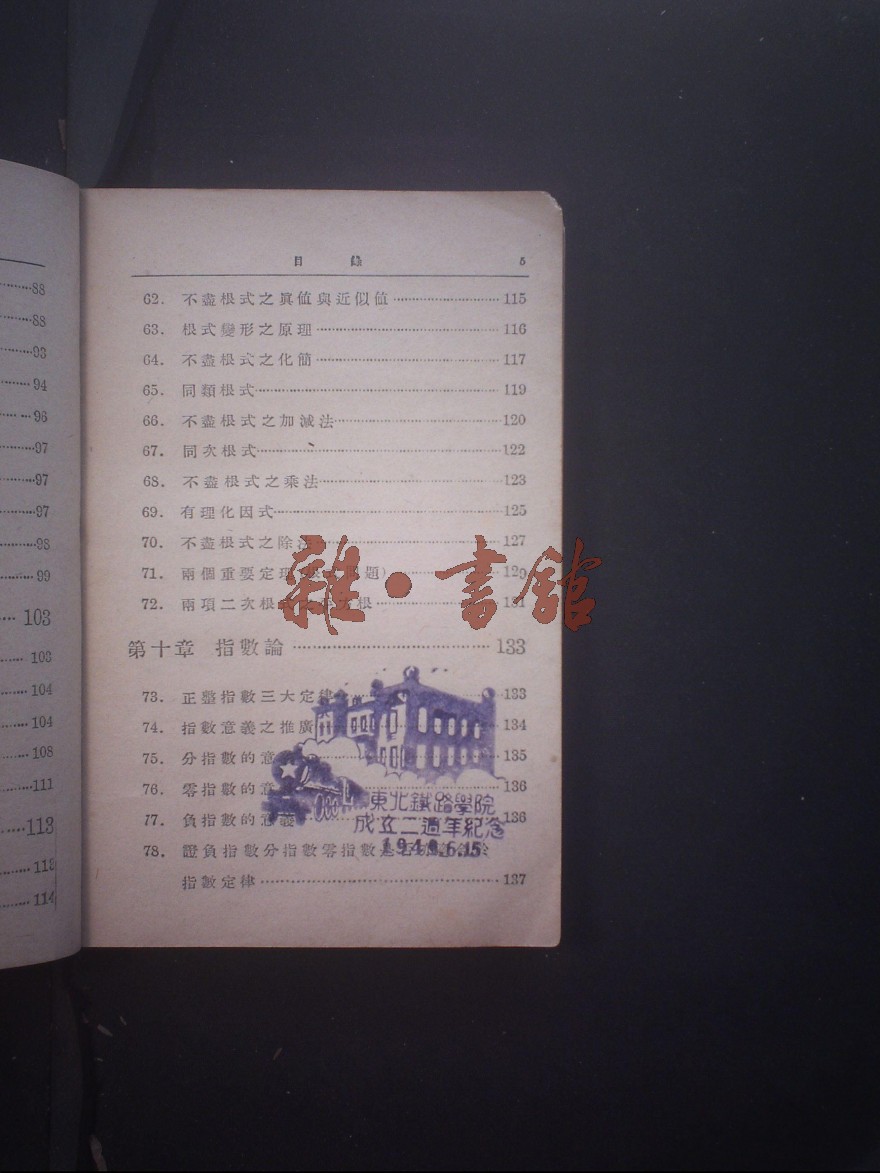 88
88
93
94
96
97
97
97
98
99
103
103
104
104
108
111
113
113
114
目 錄 5
62. 不盡根式之眞值與近似值 115
63. 根式變形之原理 116
64. 不盡根式之化簡 117
65. 同類根式 119
66. 不盡根式之加減法 120
67. 同次根式 122
68. 不盡根式之乘法 123
69. 有理化因式 125
70. 不盡根式之除法 127
71. 兩個重要定理 題) 129
72. 兩項二次根式之平方根 131
雜·書館
第十章 指數論 133
73. 正整指數三大定律 133
74. 指數意義之推廣 134
75. 分指數的意 135
76. 零指數的意 136
77. 負指數的意義 136
78. 證負指數分指數零指數 於
指數定律 137
東北鐵路學院
成立二週年紀念
1949.6.15